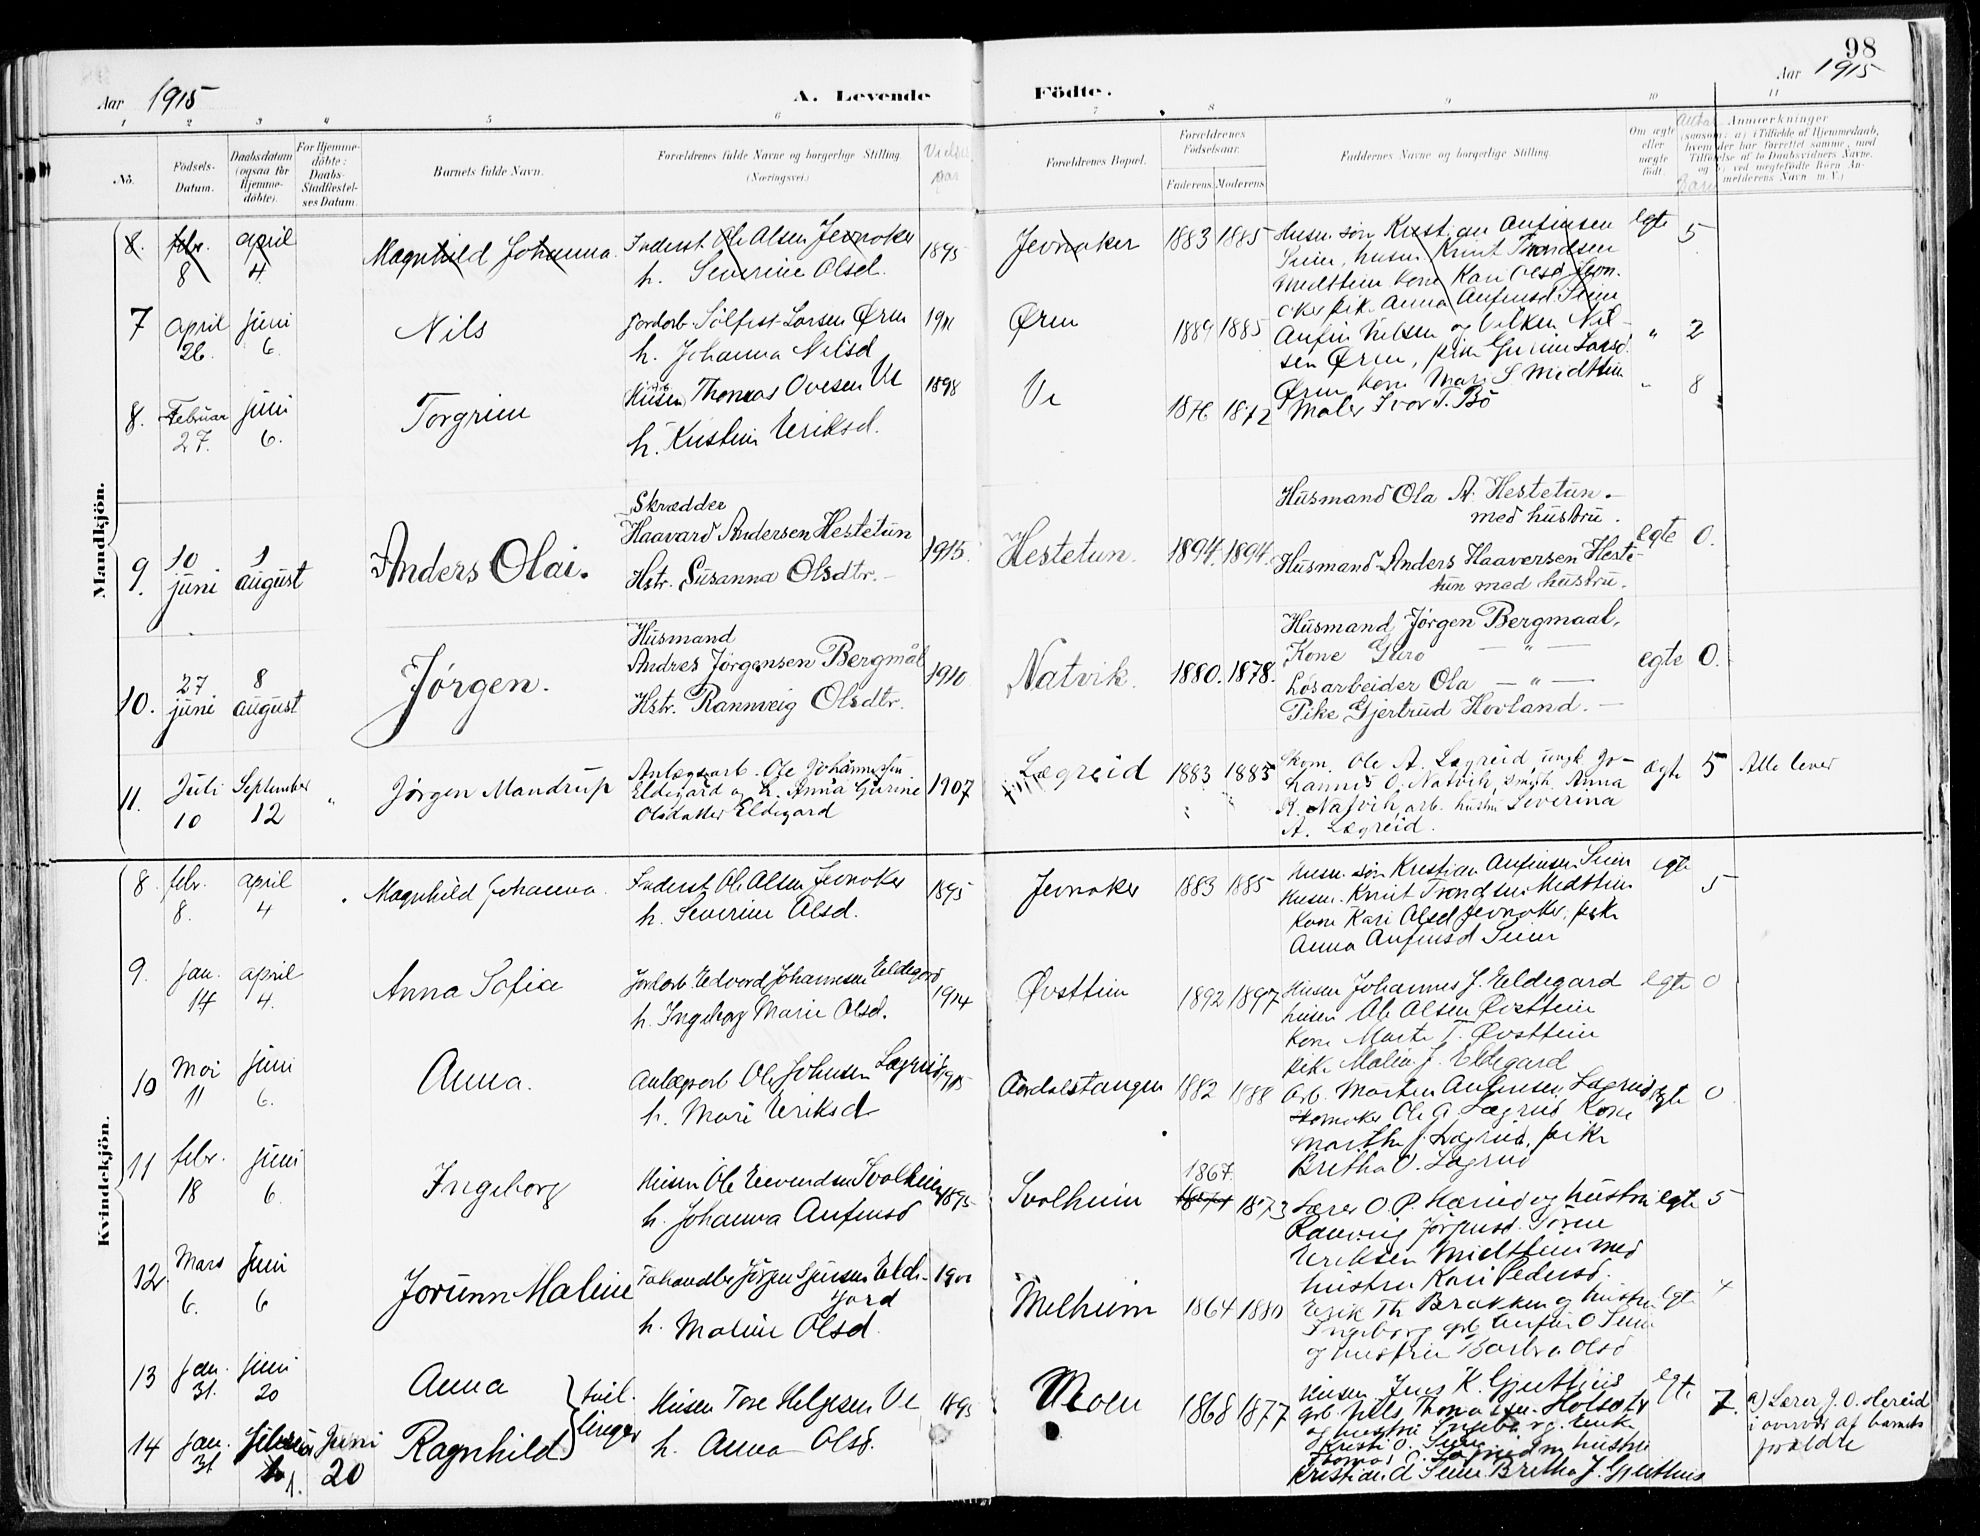 98
Aar 1915
A. Levende Födte.
Aar 1915
1 2 3 4 5 6 7 8 9 10 11
No.
Födsels-
Datum.
Daabsdatum
(ogsaa for
Hjemme-
döbte).
For Hjemme-
döbte:
Daabs-
Stadfæstel-
ses Datum.
Barnets fulde Navn.
Forældrenes fulde Navne og borgerlige Stilling
(Næringsvei.)
Forældrenes Bopæl.
Forældrenes
Födselsaar.
Faderens. Moderens.
Faddernes Navne og borgerlige Stilling
Om ægte
eller
uægte
födt.
Anmærkninger
(saasom: a) i Tilfælde af Hjemmedaab,
hvem der har forrettet samme, med
Tilföielse af to Daabsvidners Navne,
og b) ved uægtefödte Börn An-
melderens Navn m.V.)
Mandkjön.
8. febr. 8 april 4 Magnhild Johanna. Inderst Ole Olsen Jevnaker
h. Severine Olsd. 1895 Jevnaker 1883 1885 Husm. søn Kristian Anfinsen
Seim, husm Knut Trondsen
Midttun kone Kari Olsd Jevn-
aker pik. Anna Anfinsd Seim
egte 5
7 april 26. juni 6. Nils Jordarb. Sølfest Larsen Øren
h. Johanna Nilsd 1911 Øren 1889 1885 Anfin Nilsen og Vilken Nil-
sen Øren, pike Gurine Larsd.
Øren kone Mari S. Midttun
" 2
8. Februar 27. juni 6. Torgrim Husm. Thomas Ovesen Ve
h. Kristin Eriksd. 1898 Ve 1876 1872 Maler Ivar T. Bö " 8
9. 10 juni 1 august Anders Olai. Skrædder
Haavard Andersen Hestetun
Hstr. Susanna Olsdtr. 1915. Hestetun. 1894. 1894. Husmand Ola A. Hestetun.
med hustru.
Husmand Anders Haaversen Heste-
tun med hustru.
egte 0.
10. 27 juni 8 august Jørgen. Husmand
Andres Jørgensen Bergmål
Hstr. Rannveig Olsdtr. 1910 Natvik. 1880. 1878. Husmand Jørgen Bergmaal,
Kone Guro — " —
Løsarbeider Ola — " —
Pike Gjertrud Hovland.
egte 0.
11. Juli 10 September 12 " Jørgen Mandrup Anlægsarb. Ole Johannessen
Eldegard og h. Anna Gurine
Olsdatter Eldegard 1907 Lægreid 1883 1885 Skom. Ole A. Lægreid, ungk. Jo-
hannes O. Natvik, Anna
A. Natvik, arb. hustru Severina
A. Lægreid.
ægte 5 Alle lever
Kvindekjön.
8. febr. 8. april 4 Magnhild Johanna. Inderst Ole Olsen Jevnaker
h. Severine Olsd. 1895 Jevnaker 1883 1885 Husm. søn Kristian Anfinsen Seim
Husm. Knut Trondsen Midttun
kone Kari Olsd Jevnaker, pike
Anna Anfinsd Seim
egte 5
9. jan. 14 april 4. Anna Sofia Jordarb. Edvard Johannesen Eldegard
h. Ingeborg Marie Olsd. 1914 Øvsttun 1892 1897 Husm Johannes J. Eldegard
husm Ole Olsen Øvsttun
kone Marta T. Øvsttun
pike Malin J. Eldegard
egte 0
10 Mai 11 juni 6. Anna. Anlægsarb Ole Johnsen Lægreid
h. Mari Eriksd 1915 Aardalstangen 1882 1888 Arb. Marten Anfinsen Lægreid
skomaker Ole A. Lægreid, kone
Martha J. Lægreid, pike
Bretha O. Lægreid
egte 0
11 febr. 18 juni 6. Ingeborg Husm Ole Eivendsen Svalheim
h. Johanna Anfinsd 1895 Svalheim 1867 1873 Lærer O. P. Hæreid og hustru
Ranveig Jørgensd. Tören
Eriksen Midttun med
hustru Kari Pedersd.
egte 5
12 Mars 6. juni 6 Jorunn Maline Jørgen Eldegard
h. Maline Olsd. Melheim 1864 1880 Erik Th. Brakken og hustru
Ingeborg, grb. Anfin O Seim
og hustru Barbra Olsd
egte 4
13 jan. 31. juni 20 Anna
14 jan. 31 1. Juni 20 Ragnhild
tvil-
linger
Husm Tore Helgesen Ve
h. Anna Olsd. 1895 Moen 1868 1877 Husm. Jens K. Gjuthus
grb Nils
Kristi O. Seim
Thomas
Kristian A Seim. Bretha J. Gjuthus
egte 7. a) Lærer J. O. Hereid
i overvær af barnets
forældre